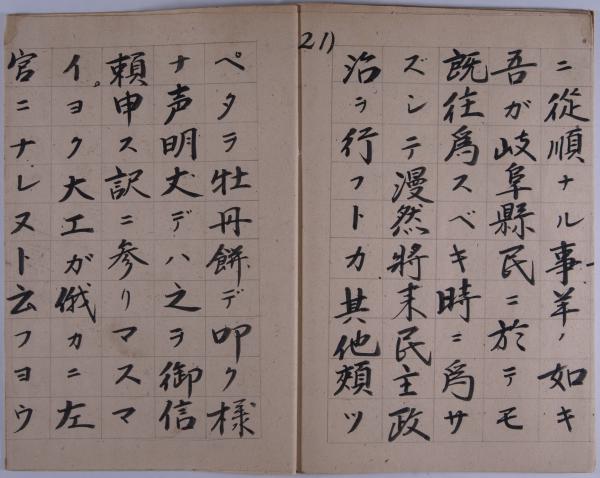 21)
ニ從順ナル事羊ノ如キ
吾が岐阜縣民ニ於テモ
既往爲スベキ時ニ爲サ
ズシテ漫然將来民主政
治ヲ行フトカ其他頬ツ
ペタヲ牡丹餅デ叩ク様
ナ声明丈デハ之ヲ御信
頼申ス訳ニ参リマスマ
イ。ヨク大工が俄カニ左
官ニナレヌト云フヨウ